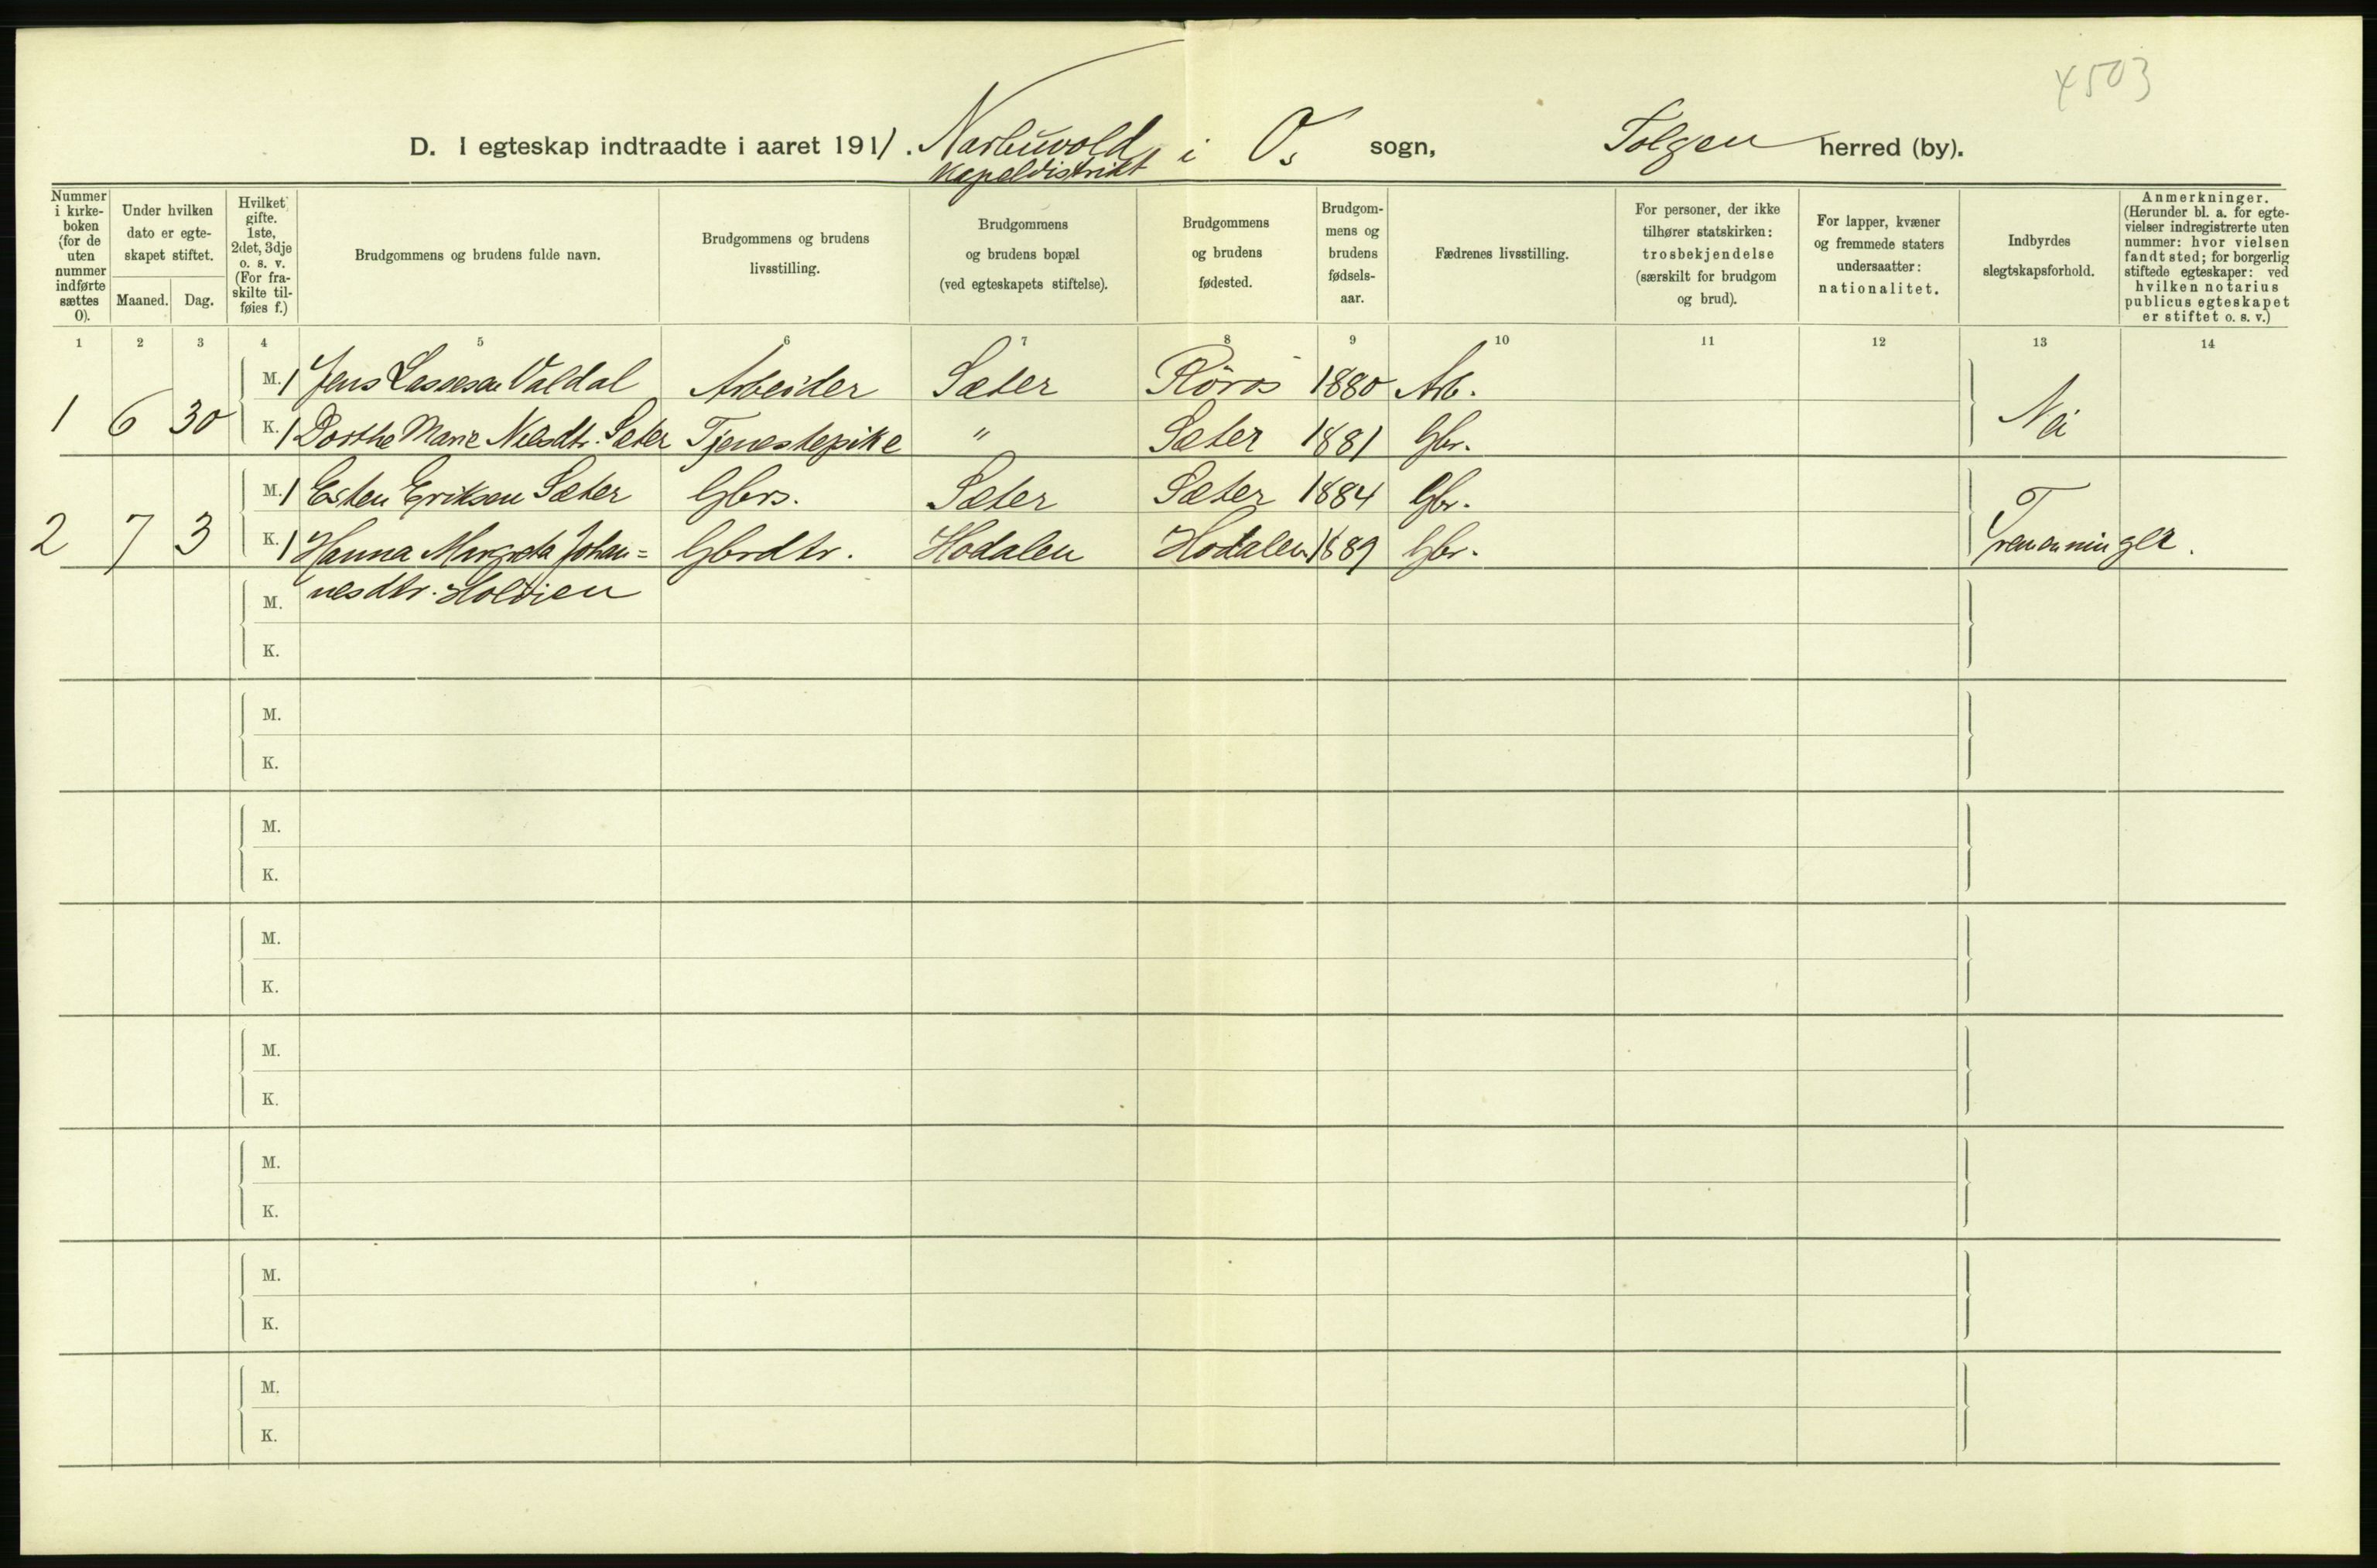 4503
D. I egteskap indtraadte i aaret 1911. Narbuvold i Os sogn, Tolgen herred (by).
Kapeldistrikt
Nummer i kirkeboken (for de uten nummer indførte sættes 0).
Under hvilken dato er egteskapet stiftet.
Maaned. Dag.
Hvilket gifte. 1ste, 2det, 3dje o. s. v. (For fraskilte tilføies f.)
Brudgommens og brudens fulde navn.
Brudgommens og brudens livsstilling.
Brudgommens og brudens bopæl (ved egteskapets stiftelse).
Brudgommens og brudens fødested.
Brudgommens og brudens fødselsaar.
Fædrenes livsstilling.
For personer, der ikke tilhører statskirken: trosbekjendelse (særskilt for brudgom og brud).
For lapper, kvæner og fremmede staters undersaatter: nationalitet.
Indbyrdes slegtskapsforhold.
Anmerkninger. (Herunder bl. a. for egtevielser indregistrerte uten nummer: hvor vielsen fandt sted; for borgerlig stiftede egteskaper: ved hvilken notarius publicus egteskapet er stiftet o. s. v.)
1 2 3 4 5 6 7 8 9 10 11 12 13 14
M. 1 Jens Lassesen Valdal Arbeider Sæter Röros 1880 Arb.
1 6 30 K. 1 Dorthe Marie Nilsdtr. Sæter Tjenestepike " Sæter 1881 Gbr. Nei
M. 1 Esten Eriksen Sæter Gbrs. Sæter Sæter 1884 Gbr.
2 7 3 K. 1 Hanna Margreta Johan= Gbrdtr. Hodalen Hodalen 1889 Gbr. Tremenninger.
M. nesdtr. Holdien
K.
M.
K.
M.
K.
M.
K.
M.
K.
M.
K.
M.
K.
M.
K.